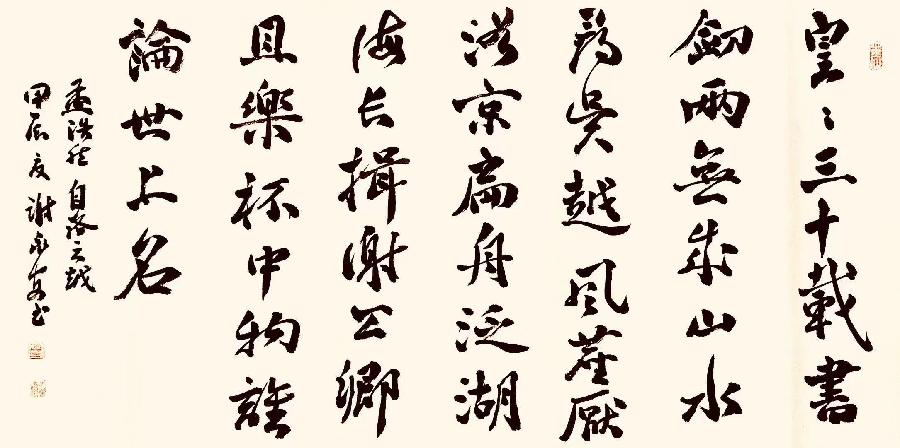 皇〻三十載書
劍兩無成山水
尋吳越風塵厭
洛京扁舟泛湖
海長揖謝公卿
且樂杯中物誰
論世上名
孟浩然自洛之越
甲辰夏謝书